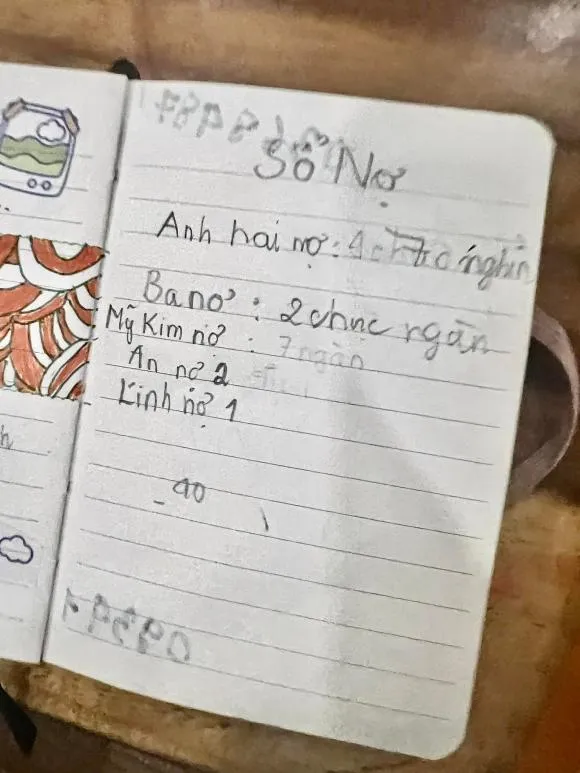 Sổ Nợ
Anh hai nợ:
Ba nợ: 2 chục ngàn
Mỹ Kim nợ: 7 ngàn
An nợ 2
Linh nợ 1
- 40
h